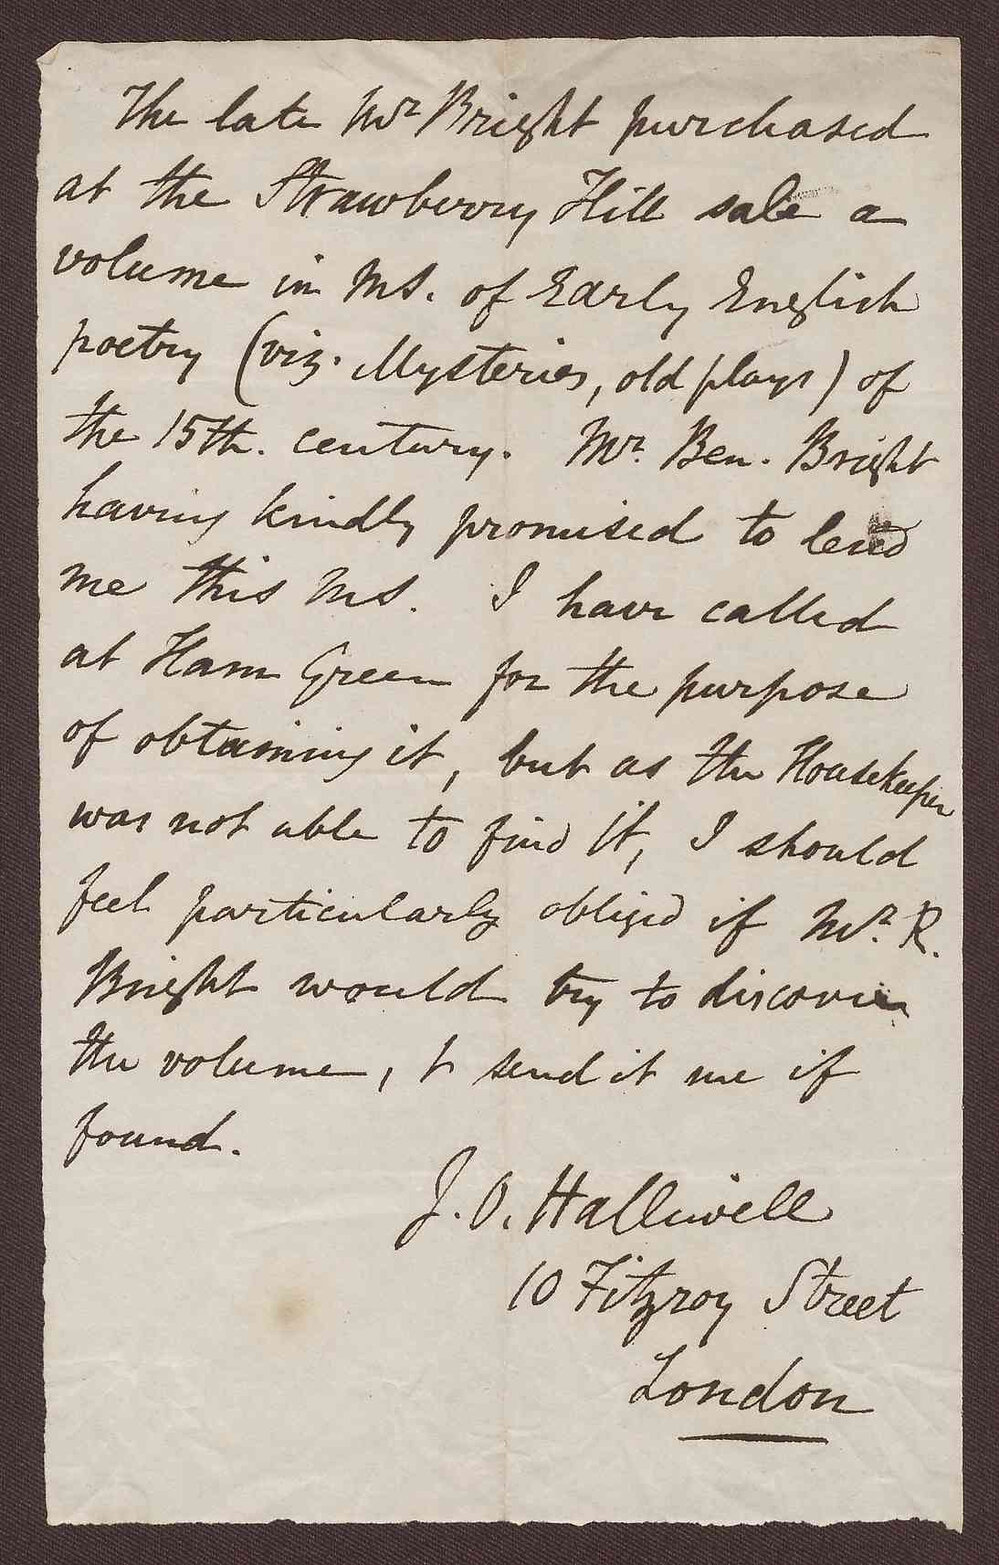 The late Mr Bright purchased
at the Strawberry Hill sale a
volume in MS. of Early English
poetry (viz. Mysteries, old plays) of
the 15th. century. Mr. Ben. Bright
having kindly promised to lend
me this MS. I have called
at Ham Green for the purpose
of obtaining it, but as the Housekeeper
was not able to find it, I should
feel particularly obliged if Mr. R.
Bright would try to discover
the volume, & send it me if
found.
J. O. Halliwell
10 Fitzroy Street
London